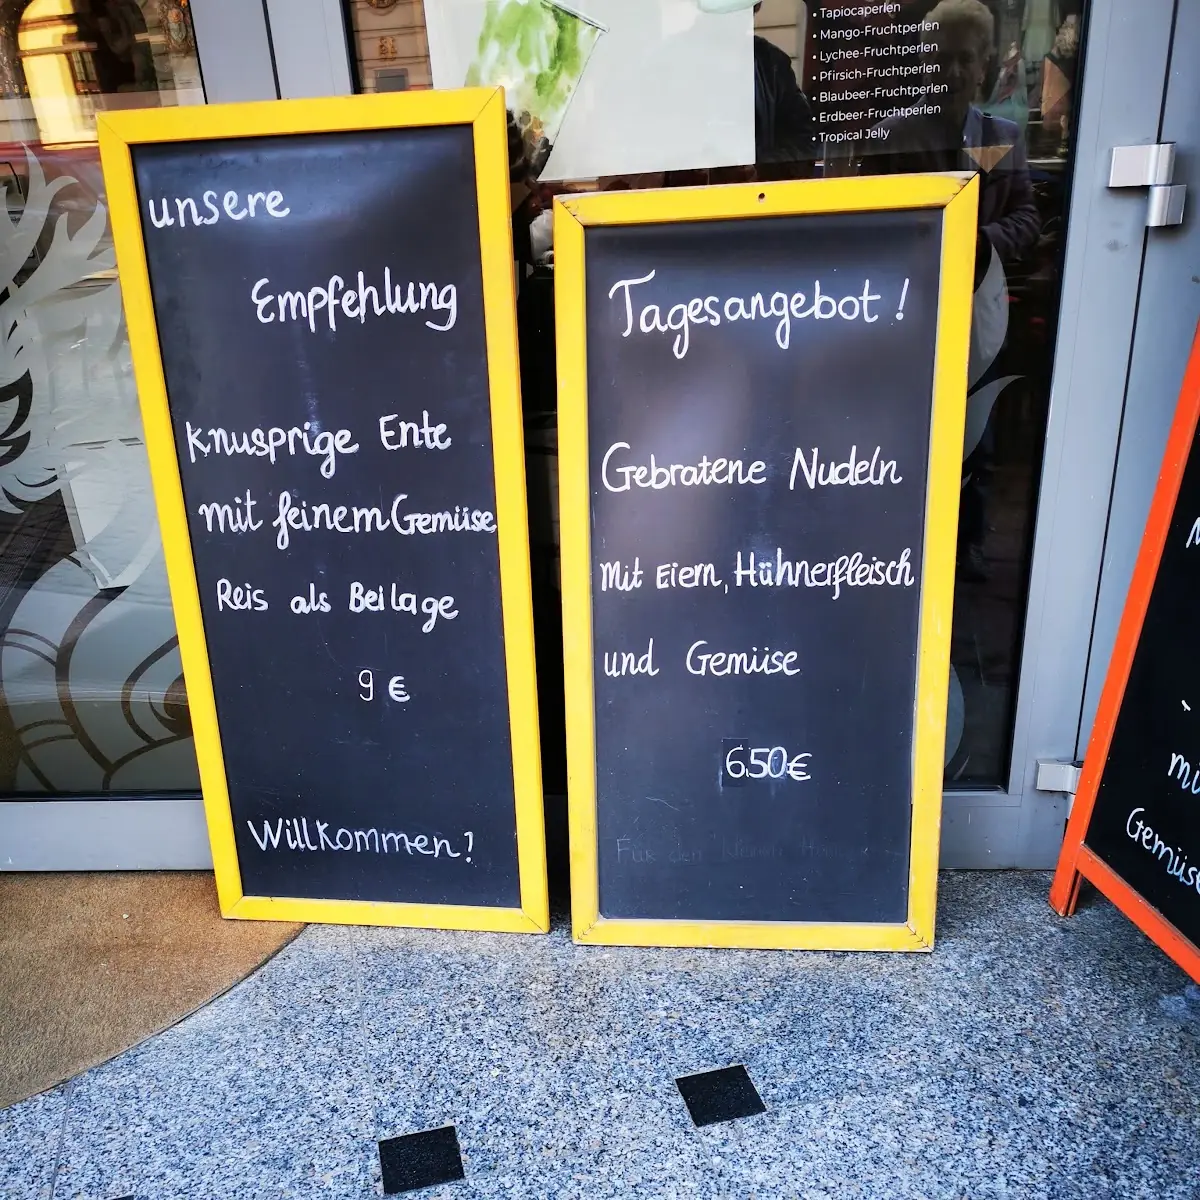 • Tapiocaperlen
• Mango-Fruchtperlen
• Lychee-Fruchtperlen
• Pfirsich-Fruchtperlen
• Blaubeer-Fruchtperlen
• Erdbeer-Fruchtperlen
• Tropical Jelly
unsere
Empfehlung
Knusprige Ente
mit feinem Gemüse
Reis als Beilage
9 €
Willkommen!
Tagesangebot!
Gebratene Nudeln
mit Eiern, Hühnerfleisch
und Gemüse
6.50€
Für den
Gemüse